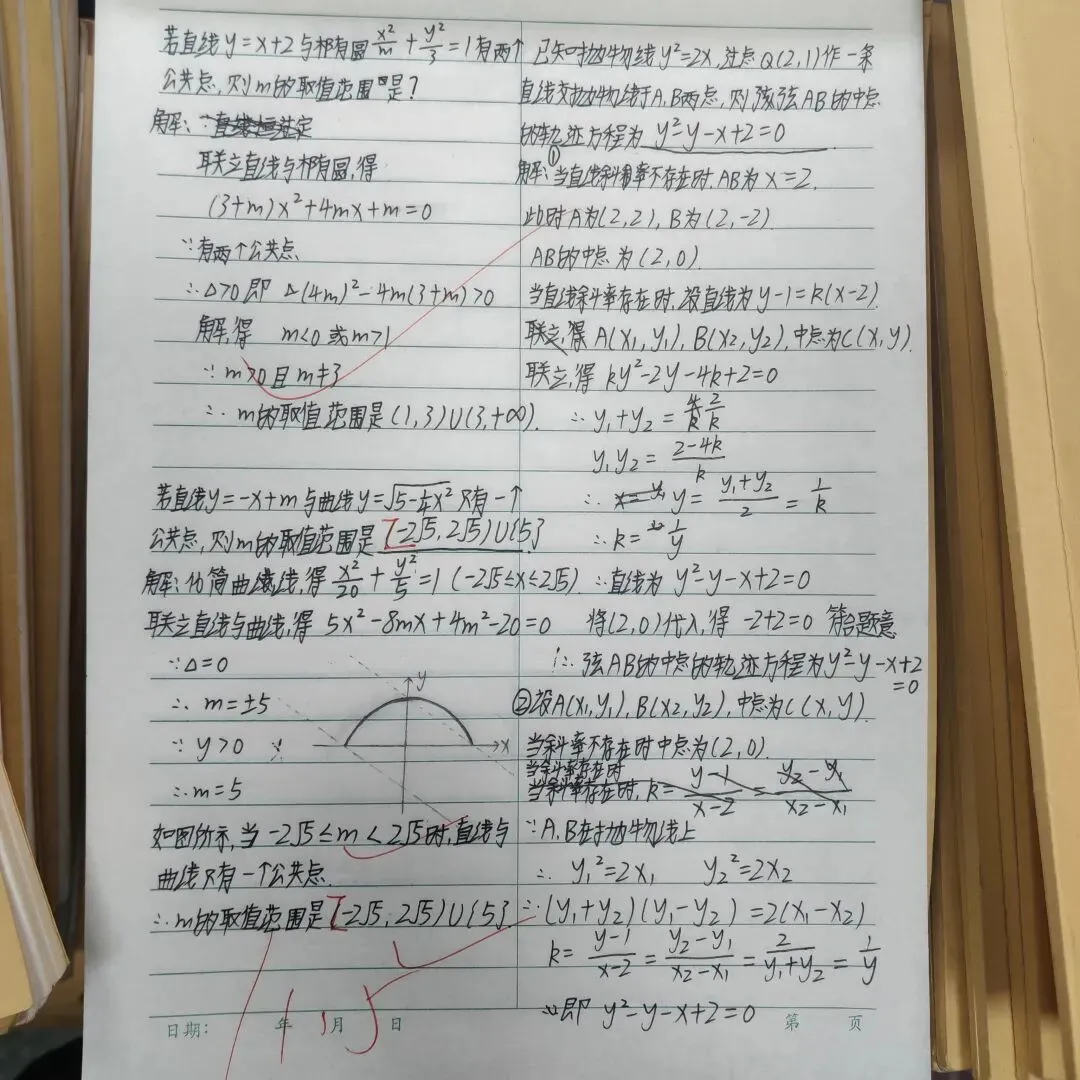 若直线y=x+2与椭圆x²/m+y²/3=1有两个
公共点,则m的取值范围是?
解:
联立直线与椭圆,得
(3+m)x²+4mx+m=0
∵有两个公共点
∴Δ>0即 (4m)²-4m(3+m)>0
解,得 m<0或m>1
∵m>0且m≠3
∴m的取值范围是(1,3)∪(3,+∞).
若直线y=-x+m与曲线y=√(5-¼x²)只有一个
公共点,则m的取值范围是[-2√5,2√5)∪{5}
解:化简曲线,得x²/20+y²/5=1(-2√5≤x≤2√5).
联立直线与曲线,得 5x²-8mx+4m²-20=0
∵Δ=0
∴m=±5
∵y>0
∴m=5
y
x
如图所示,当-2√5≤m<2√5时,直线与
曲线只有一个公共点.
∴m的取值范围是[-2√5,2√5)∪{5}.
已知抛物线y²=2x,过点Q(2,1)作一条
直线交抛物线于A,B两点,则弦AB的中点
的轨迹方程为 y²-y-x+2=0
解:①当直线斜率不存在时,AB为x=2.
此时A为(2,2),B为(2,-2).
AB的中点为(2,0).
当直线斜率存在时,设直线为y-1=k(x-2).
联立,得A(x₁,y₁),B(x₂,y₂),中点为C(x,y).
联立,得ky²-2y-4k+2=0
∴y₁+y₂=2/k
y₁y₂=(2-4k)/k
∴y=(y₁+y₂)/2=1/k
∴k=1/y
∴直线为 y²-y-x+2=0
将(2,0)代入,得 -2+2=0 符合题意
∴弦AB的中点的轨迹方程为y²-y-x+2
=0
②设A(x₁,y₁),B(x₂,y₂),中点为C(x,y).
当斜率不存在时中点为(2,0).
当斜率存在时
当斜率存在时,k=(y-1)/(x-2)=(y₂-y₁)/(x₂-x₁)
∵A,B在抛物线上
∴y₁²=2x₁ y₂²=2x₂
∴(y₁+y₂)(y₁-y₂)=2(x₁-x₂)
k=(y-1)/(x-2)=(y₂-y₁)/(x₂-x₁)=2/(y₁+y₂)=1/y
即 y²-y-x+2=0
日期: 年 1月 5日
第 页